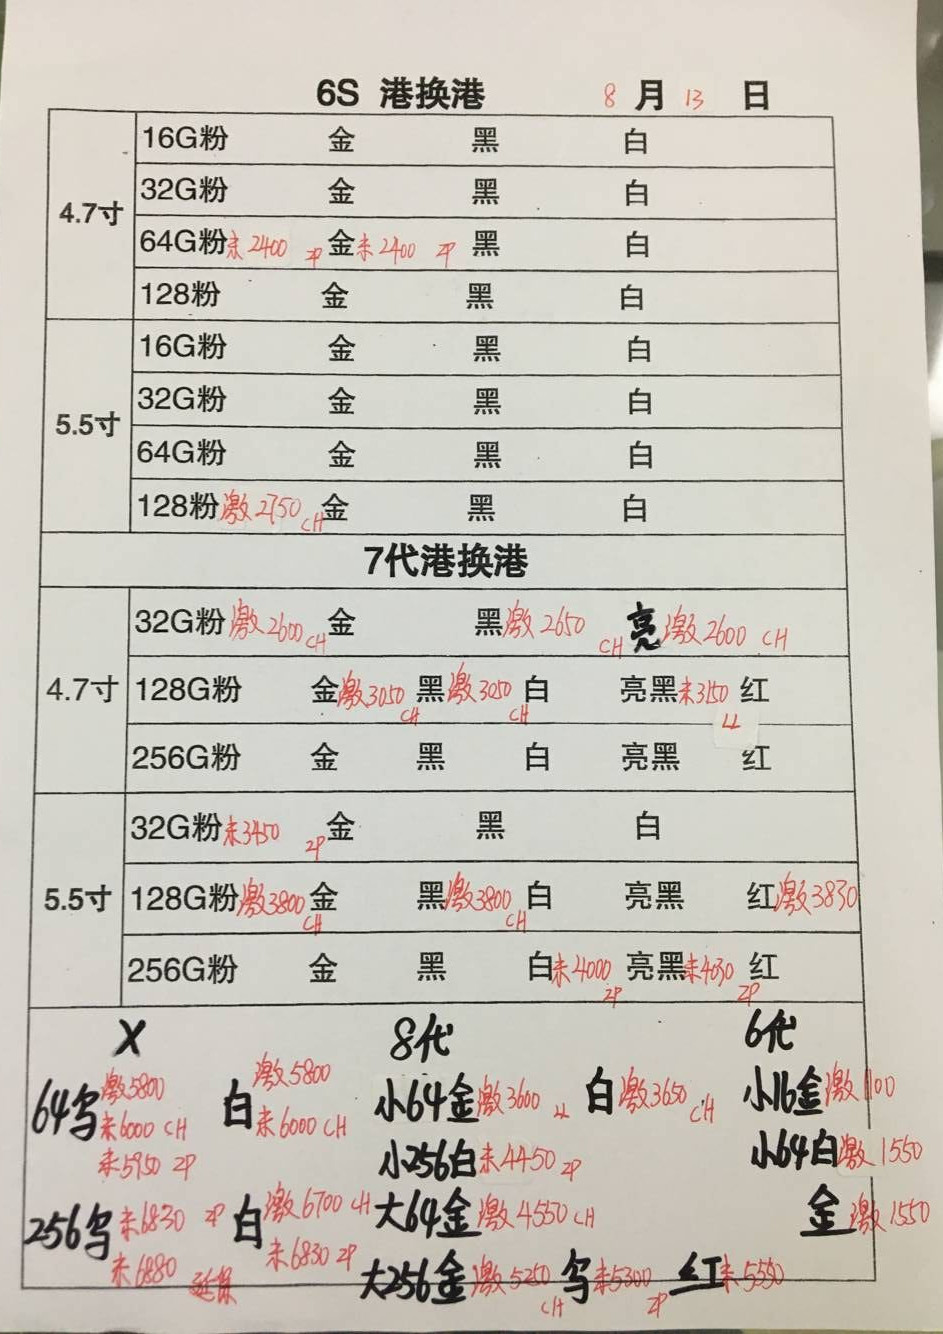 6S 港换港 8 月 13 日
4.7寸
16G粉 金 黑 白
32G粉 金 黑 白
64G粉 未2400 ZP 金 未2400 ZP 黑 白
128粉 金 黑 白
5.5寸
16G粉 金 黑 白
32G粉 金 黑 白
64G粉 金 黑 白
128粉 激2750 CH 金 黑 白
7代港换港
4.7寸
32G粉 激2600 CH 金 黑 激2650 CH 亮 激2600 CH
128G粉 金 激3050 CH 黑 激3050 CH 白 亮黑 未3150 LL 红
256G粉 金 黑 白 亮黑 红
5.5寸
32G粉 未3450 ZP 金 黑 白
128G粉 激3800 CH 金 黑 激3800 CH 白 亮黑 红 激3830
256G粉 金 黑 白 未4000 ZP 亮黑 未4030 ZP 红
X 8代 6代
64乌 激5800 白 激5800 小64金 激3600 LL 白 激3650 CH 小16金 激1100
未6000 CH 未6000 CH
未5950 ZP 小256白 未4450 ZP 小64白 激1550
256乌 未6830 ZP 白 激6700 CH 大64金 激4550 CH 金 激1550
未6880 延保 未6830 ZP
大256金 激5250 CH 乌 未5300 ZP 红 未5550